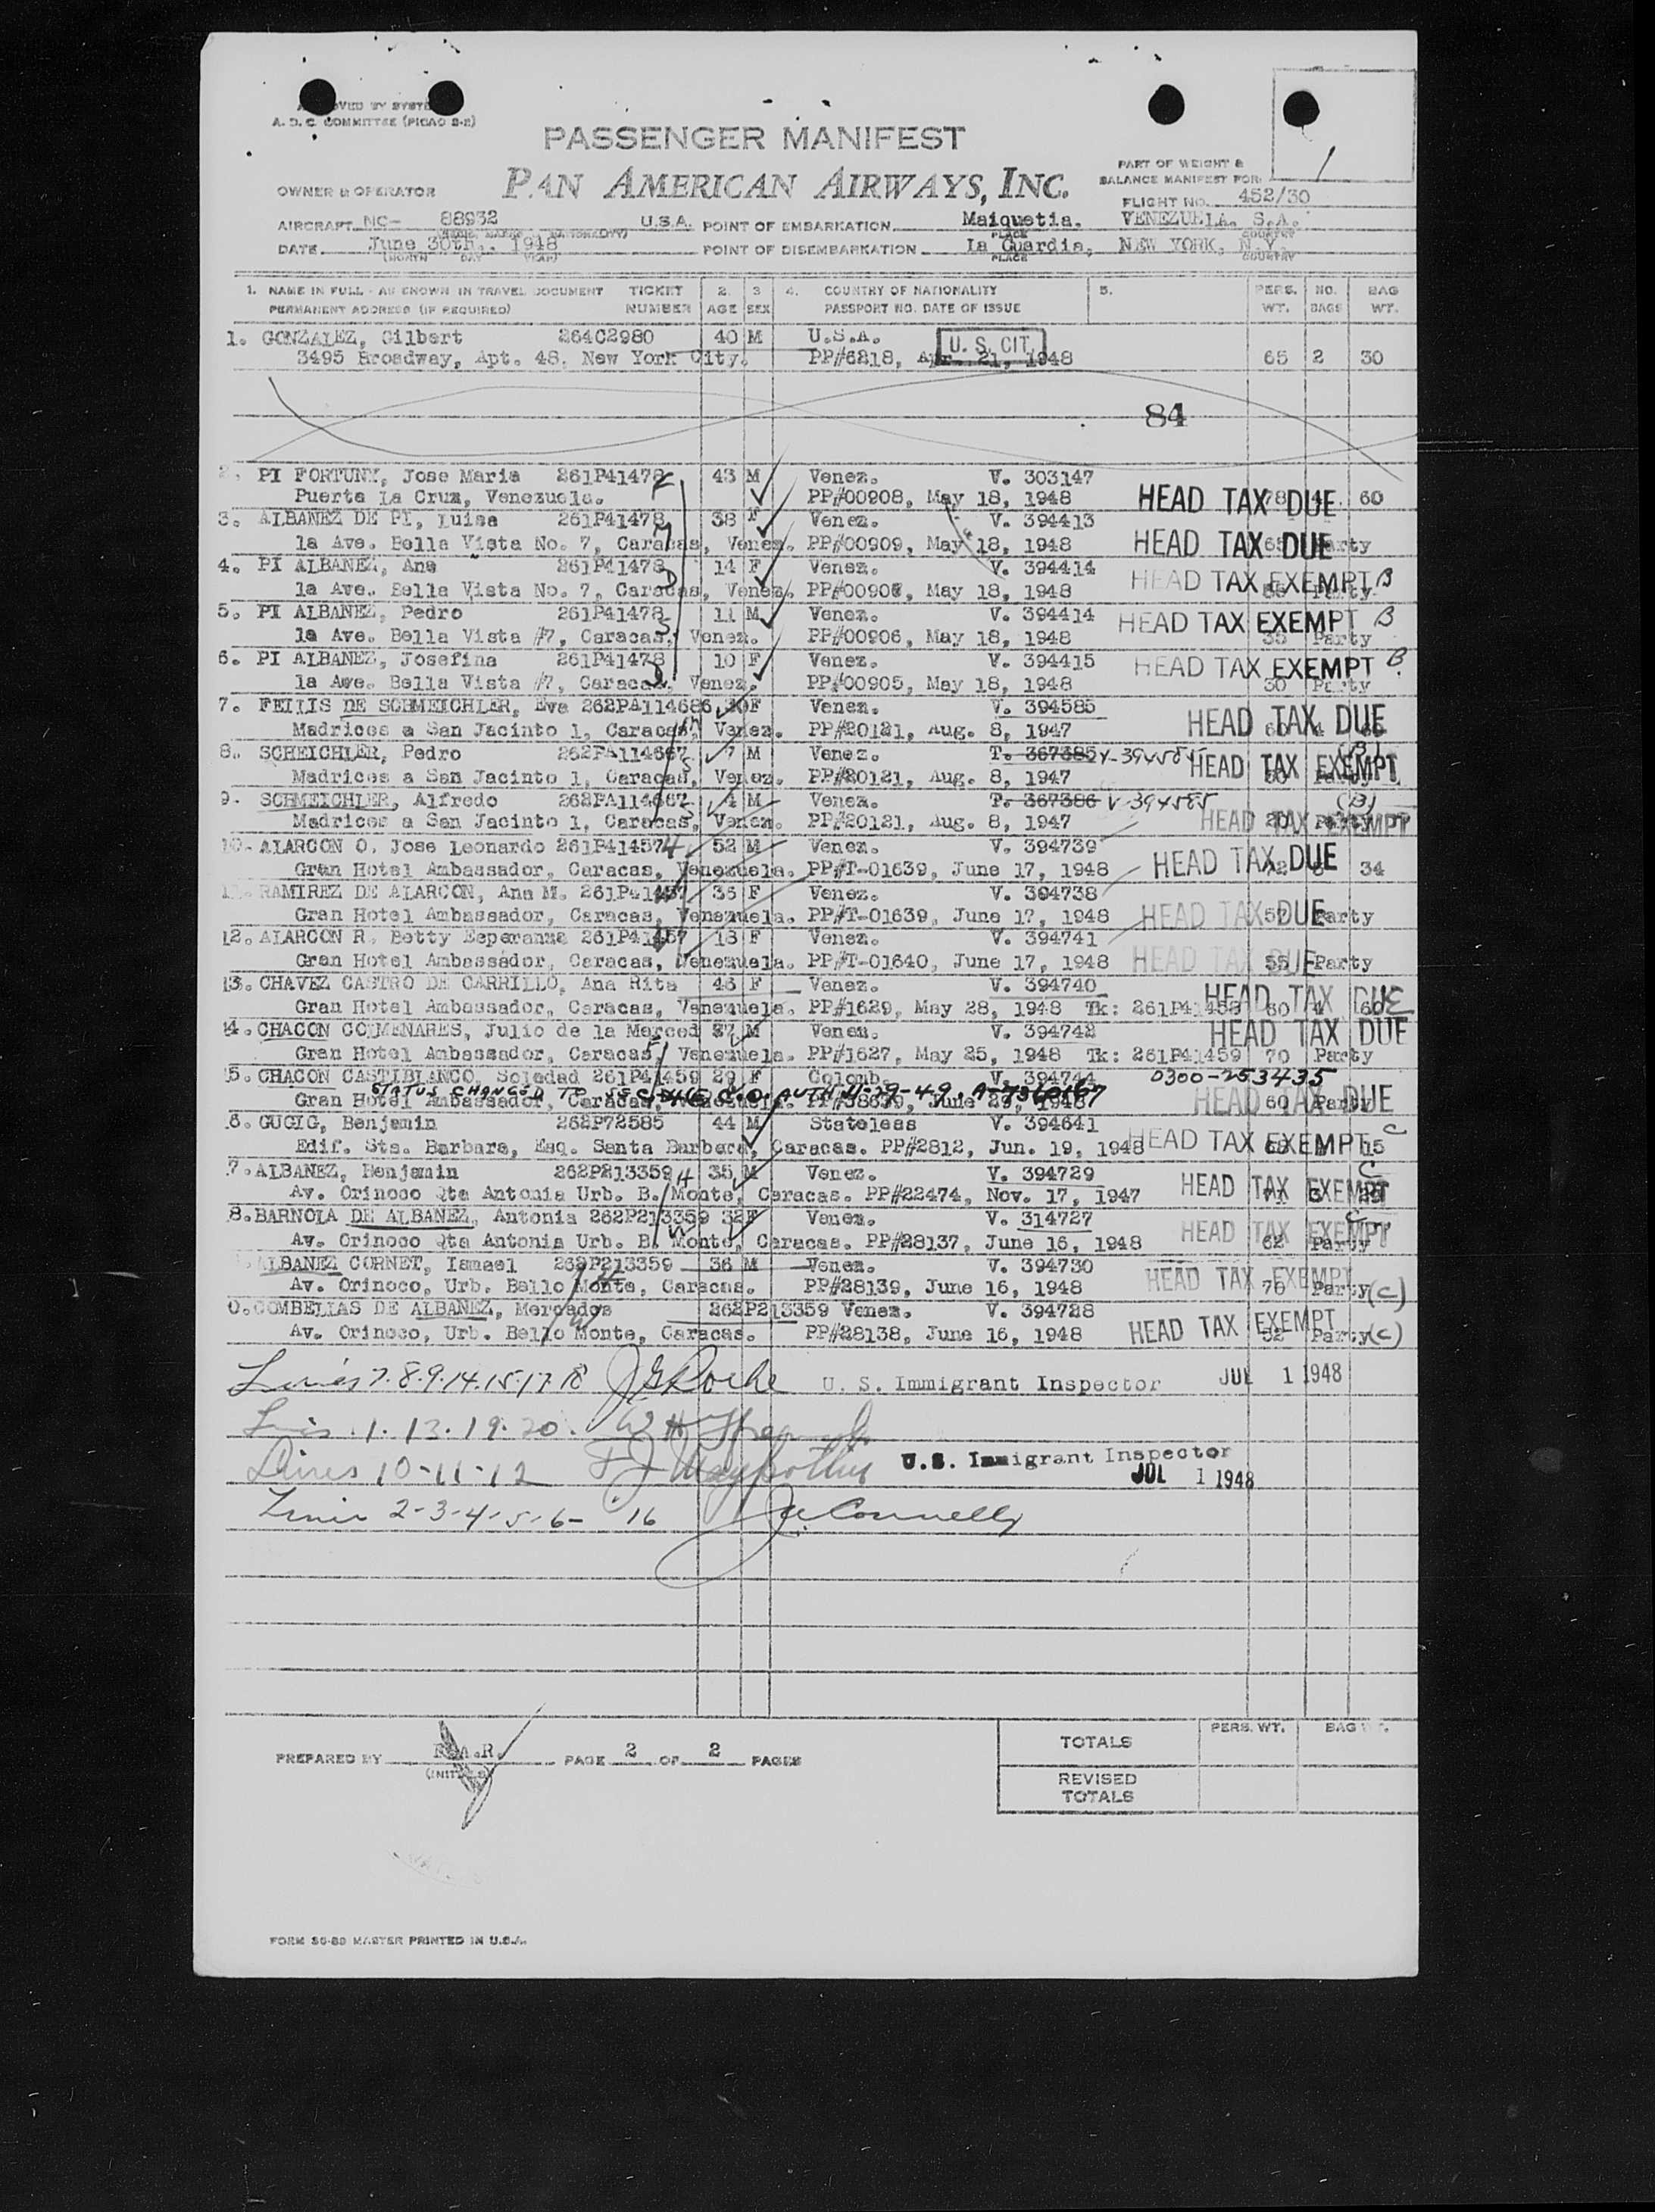 A. D. C. COMMITTEE (PICAO 2-2)
PASSENGER MANIFEST
PAN AMERICAN AIRWAYS, INC.
PART OF WEIGHT &
BALANCE MANIFEST FOR
OWNER & OPERATOR
FLIGHT NO. 452/30
AIRCRAFT NC- 88932 U.S.A. POINT OF EMBARKATION Maiquetia, VENEZUELA. S.A.
PLACE COUNTRY
DATE June 30th., 1948 POINT OF DISEMBARKATION La Guardia, NEW YORK, N.Y.
(MONTH DAY YEAR) PLACE COUNTRY
1. NAME IN FULL - AS SHOWN IN TRAVEL DOCUMENT TICKET 2. 3 4. COUNTRY OF NATIONALITY 5. PERS. NO. BAG
PERMANENT ADDRESS (IF REQUIRED) NUMBER AGE SEX PASSPORT NO. DATE OF ISSUE WT. BAGS WT.
1. GONZALEZ, Gilbert 264C2980 40 M U.S.A. U. S. CIT.
3495 Broadway, Apt. 48, New York City. PP#6218, Apr. 21, 1948 65 2 30
84
2. PI FORTUNY, Jose Maria 261P41478 43 M Venez. V. 303147
Puerta La Cruz, Venezuela. PP#00908, May 18, 1948 HEAD TAX DUE 78 60
3. ALBANEZ DE PI, Luisa 261P41478 38 F Venez. V. 394413
1a Ave. Bella Vista No. 7, Caracas, Venez. PP#00909, May 18, 1948 HEAD TAX DUE 65 Party
4. PI ALBANEZ, Ana 261P41478 14 F Venez. V. 394414
1a Ave. Bella Vista No. 7, Caracas, Venez. PP#00907, May 18, 1948 HEAD TAX EXEMPT B Party
5. PI ALBANEZ, Pedro 261P41478 11 M Venez. V. 394414
1a Ave. Bella Vista #7, Caracas, Venez. PP#00906, May 18, 1948 HEAD TAX EXEMPT B 35 Party
6. PI ALBANEZ, Josefina 261P41478 10 F Venez. V. 394415
1a Ave. Bella Vista #7, Caracas, Venez. PP#00905, May 18, 1948 HEAD TAX EXEMPT B 30 Party
7. FEILIS DE SCHMEICHLER, Eva 262PA114686 30 F Venez. V. 394585
Madrices a San Jacinto 1, Caracas, Venez. PP#20121, Aug. 8, 1947 HEAD TAX DUE
8. SCHEICHLER, Pedro 262PA114667 7 M Venez. T. 367385 V-394585 (B)
Madrices a San Jacinto 1, Caracas, Venez. PP#20121, Aug. 8, 1947 HEAD TAX EXEMPT
9. SCHMEICHLER, Alfredo 262PA114667 4 M Venez. T. 367386 V-394585 (B)
Madrices a San Jacinto 1, Caracas, Venez. PP#20121, Aug. 8, 1947 HEAD TAX EXEMPT
10. ALARCON O. Jose Leonardo 261P41457 52 M Venez. V. 394739
Gran Hotel Ambassador, Caracas, Venezuela. PP#T-01639, June 17, 1948 HEAD TAX DUE 34
11. RAMIREZ DE ALARCON, Ana M. 261P41457 35 F Venez. V. 394738
Gran Hotel Ambassador, Caracas, Venezuela. PP#T-01639, June 17, 1948 HEAD TAX DUE Party
12. ALARCON R. Betty Esperanza 261P41457 18 F Venez. V. 394741
Gran Hotel Ambassador, Caracas, Venezuela. PP#T-01640, June 17, 1948 HEAD TAX DUE 55 Party
13. CHAVEZ CASTRO DE CARRILLO, Ana Rita 43 F Venez. V. 394740
Gran Hotel Ambassador, Caracas, Venezuela. PP#1629, May 28, 1948 Tk: 261P41458 HEAD TAX DUE 60
4. CHACON COLMENARES, Julio de la Merced 37 M Venez. V. 394742
Gran Hotel Ambassador, Caracas, Venezuela. PP#1627, May 25, 1948 Tk: 261P41459 HEAD TAX DUE 70 Party
5. CHACON CASTIBLANCO, Soledad 261P41459 29 F Colomb. V. 394744 0300-253435
STATUS CHANGED TO C.O. AUTH 11-29-49.
Gran Hotel Ambassador, Caracas, Venezuela. HEAD TAX DUE 60 Party
6. GUCIG, Benjamin 262P72585 44 M Stateless V. 394641
Edif. Sta. Barbara, Esq. Santa Barbara, Caracas. PP#2812, Jun. 19, 1948 HEAD TAX EXEMPT C 15
7. ALBANEZ, Benjamin 262P213359 35 M Venez. V. 394729
Av. Orinoco Qta Antonia Urb. B. Monte, Caracas. PP#22474, Nov. 17, 1947 HEAD TAX EXEMPT C
8. BARNOLA DE ALBANEZ, Antonia 262P213359 32 F Venez. V. 314727
Av. Orinoco Qta Antonia Urb. B. Monte, Caracas. PP#28137, June 16, 1948 HEAD TAX EXEMPT C 62 Party
ALBANEZ CORNET, Ismael 262P213359 36 M Venez. V. 394730
Av. Orinoco, Urb. Bello Monte, Caracas. PP#28139, June 16, 1948 HEAD TAX EXEMPT 76 Party (C)
0. COMBELLAS DE ALBANEZ, Mercedes 262P213359 Venez. V. 394728
Av. Orinoco, Urb. Bello Monte, Caracas. PP#28138, June 16, 1948 HEAD TAX EXEMPT 52 Party (C)
Lines 7.8.9.14.15.17.18 J G Roche U. S. Immigrant Inspector JUL 1 1948
1.13.19.20.
Lines 10-11-12 U.S. Immigrant Inspector
JUL 1 1948
Lines 2-3-4-5-6- 16 Connelly
PREPARED BY PAGE 2 OF 2 PAGES
(INITIALS)
PERS. WT. BAG WT.
TOTALS
REVISED
TOTALS
FORM 30-80 MASTER PRINTED IN U.S.A.